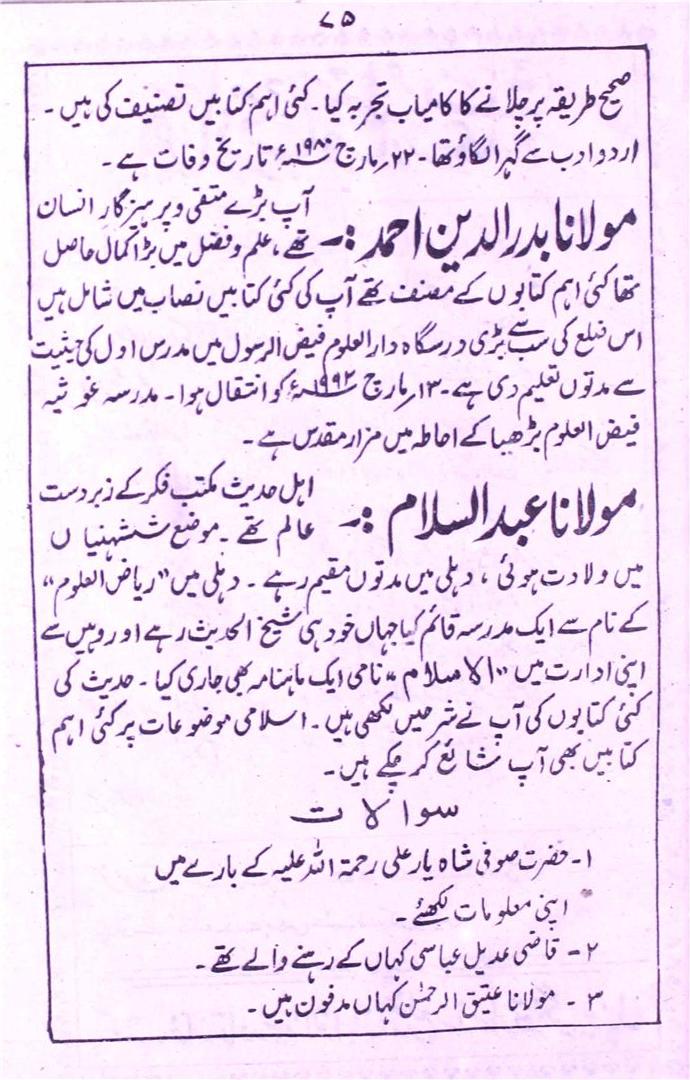 ۷۵
صحیح طریقہ پر چلانے کا کامیاب تجربہ کیا۔ کئی اہم کتابیں تصنیف کی ہیں۔
اردو ادب سے گہرا لگاؤ تھا۔ ۲۲؍مارچ ۱۹۸۰ء تاریخ وفات ہے۔
مولانا بدرالدین احمد :۔ آپ بڑے متقی و پرہیزگار انسان
تھے، علم و فضل میں بڑا کمال حاصل
تھا کئی اہم کتابوں کے مصنف تھے آپ کی کئی کتابیں نصاب میں شامل ہیں
اس ضلع کی سب سے بڑی درسگاہ دارالعلوم فیض الرسول میں مدرس اول کی حیثیت
سے مدتوں تعلیم دی ہے۔ ۱۳؍مارچ ۱۹۹۲ء کو انتقال ہوا۔ مدرسہ غوثیہ
فیض العلوم بڑھیا کے احاطہ میں مزار مقدس ہے۔
مولانا عبدالسلام :۔ اہل حدیث مکتب فکر کے زبردست
عالم تھے۔ موضع ششہنیاں
میں ولادت ہوئی، دہلی میں مدتوں مقیم رہے۔ دہلی میں "ریاض العلوم"
کے نام سے ایک مدرسہ قائم کیا جہاں خود ہی شیخ الحدیث رہے اور وہیں سے
اپنی ادارت میں "الاسلام" نامی ایک ماہنامہ بھی جاری کیا۔ حدیث کی
کئی کتابوں کی آپ نے شرحیں لکھی ہیں۔ اسلامی موضوعات پر کئی اہم
کتابیں بھی آپ شائع کر چکے ہیں۔
سوالات
۱۔ حضرت صوفی شاہ یار علی رحمۃ اللہ علیہ کے بارے میں
اپنی معلومات لکھئے۔
۲۔ قاضی عدیل عباسی کہاں کے رہنے والے تھے۔
۳۔ مولانا عتیق الرحمٰن کہاں مدفون ہیں۔